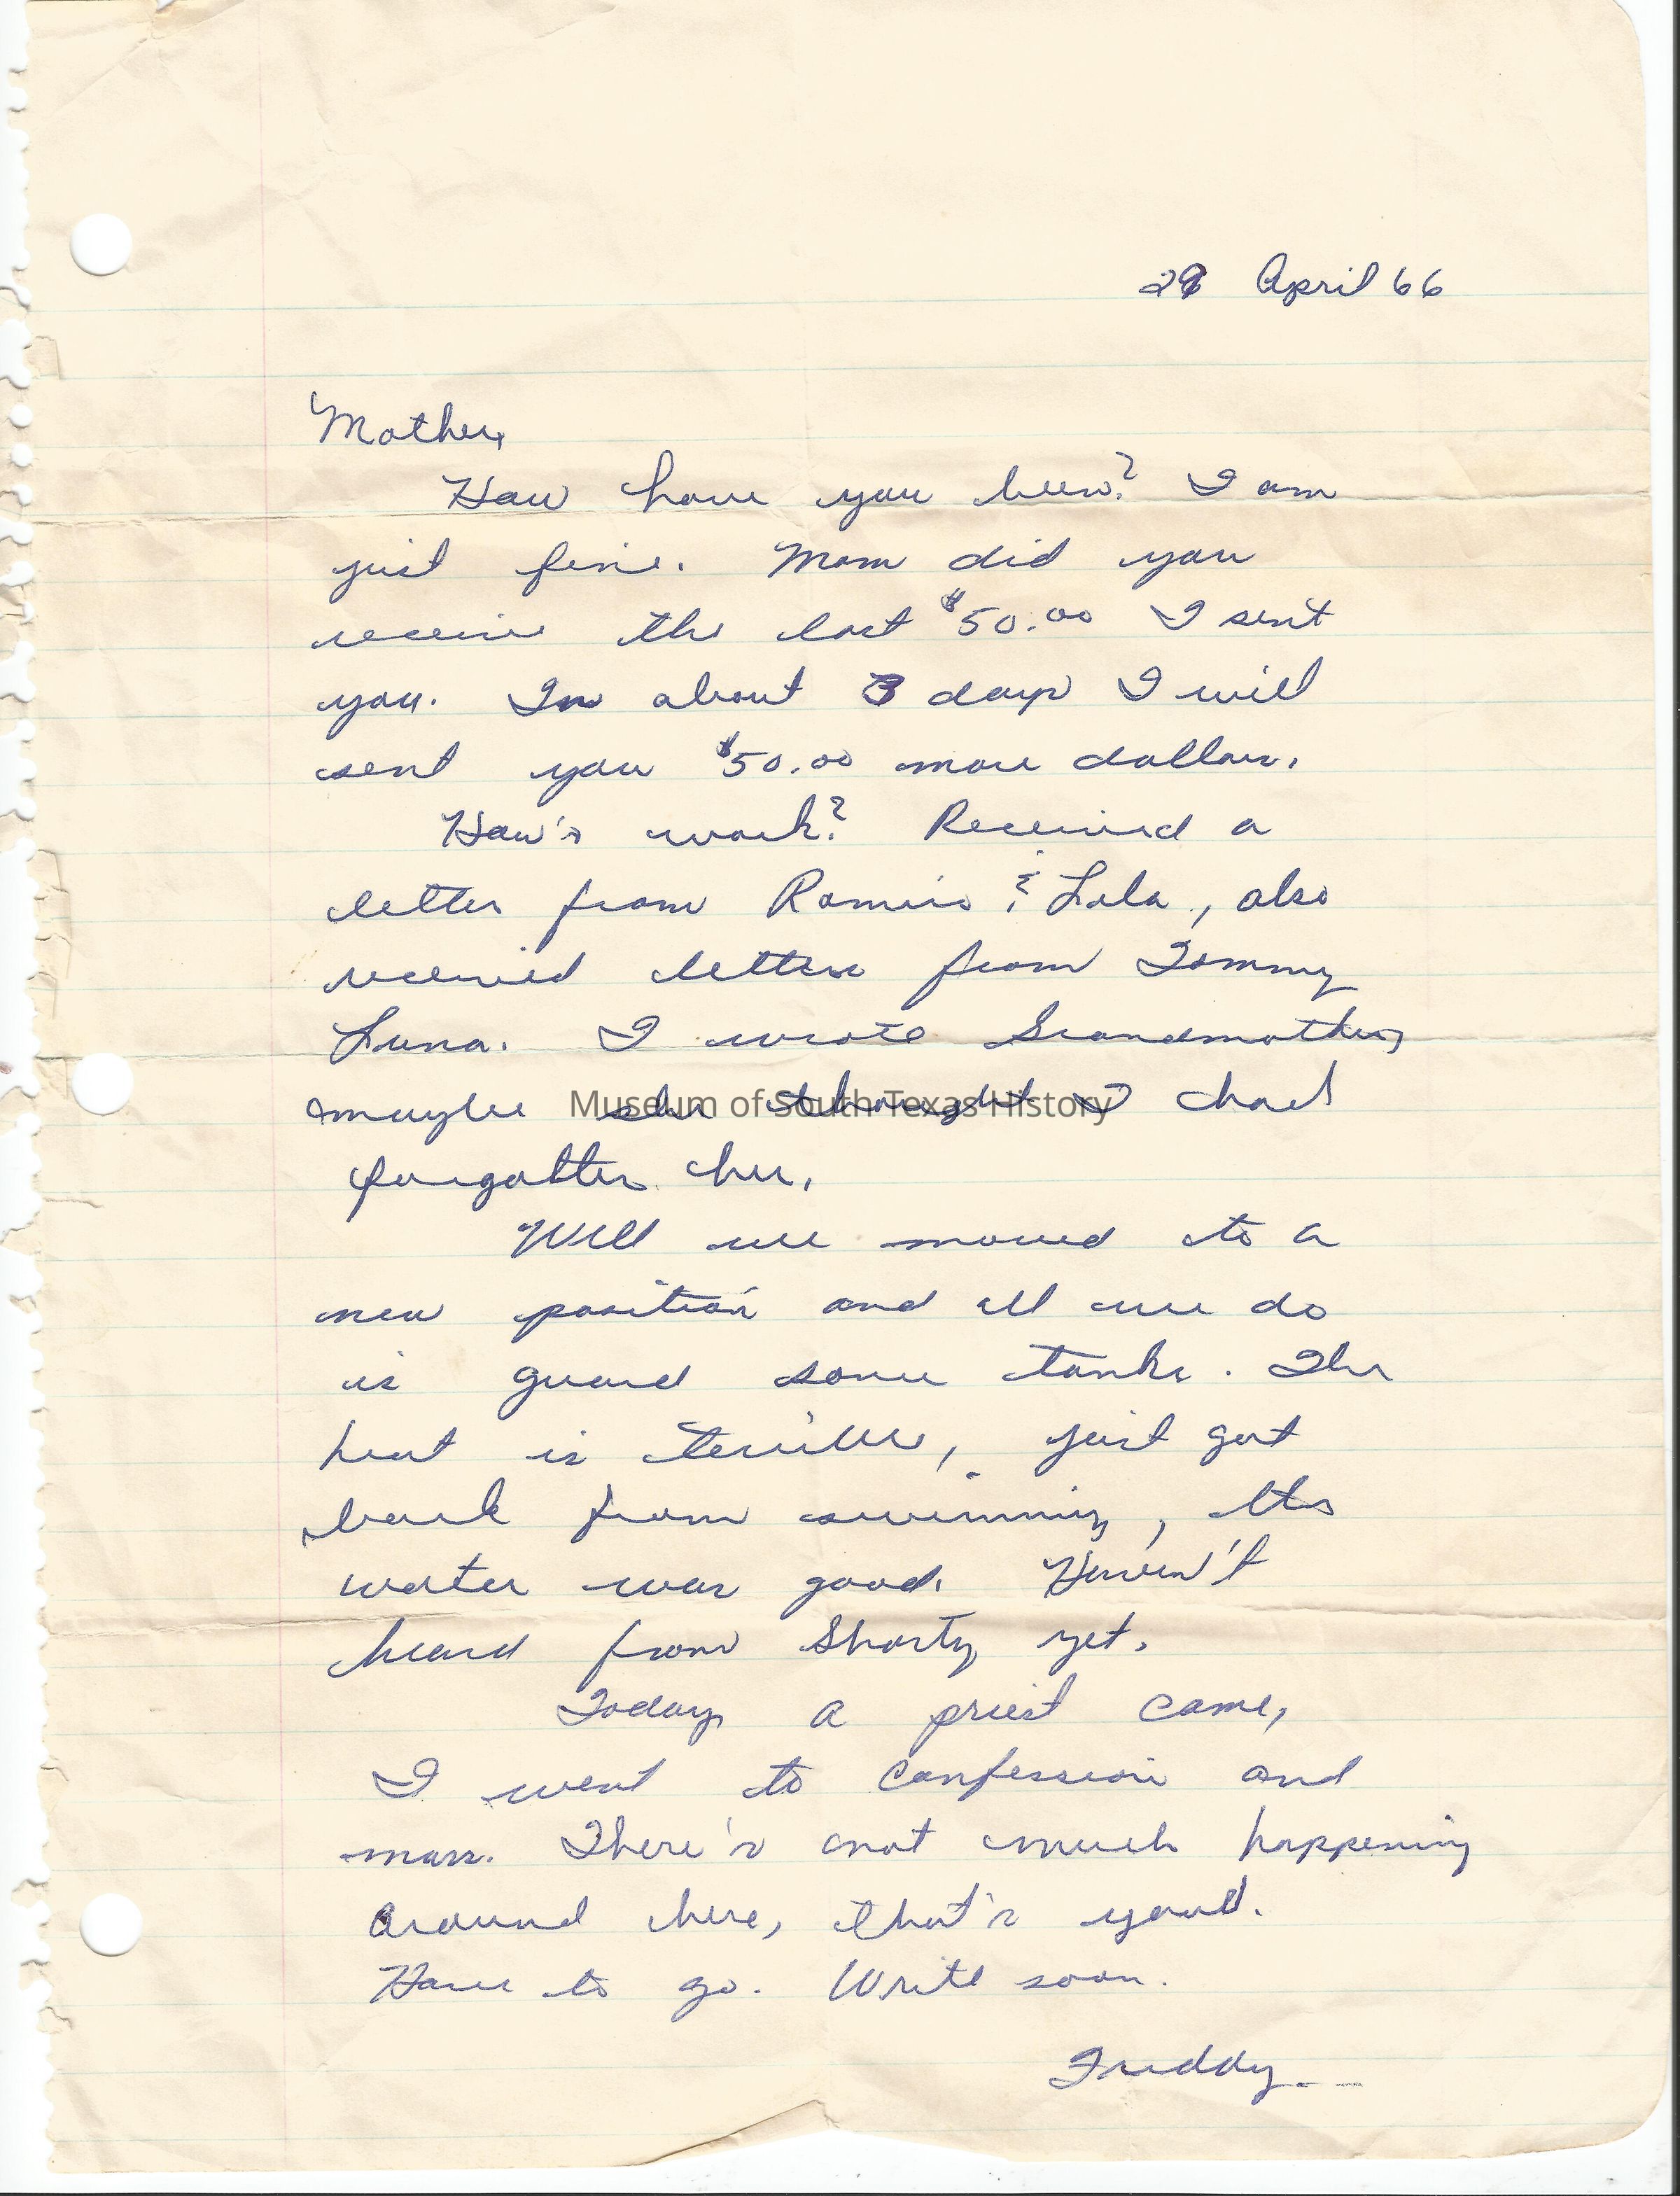 April 66
Mother,
How have you been? I am
just fine. Mom did you
receive the last $50.00 I sent
you. In about 3 days I will
sent you $50.00 more dollars.
How's work? Received a
letter from Ramiro & Lila, also
received letters from Tommy
Luna. I wrote Grandmother,
maybe she thought I had
Museum of South Texas History
forgotten her.
Well we moved to a
new position and all we do
is guard some tanks. The
heat is terrible, just got
back from swimming, the
water was good. Haven't
heard from Shorty yet.
Today a priest came,
I went to confession and
mass. There's not much happening
around here, that's good.
Have to go. Write soon.
Freddy